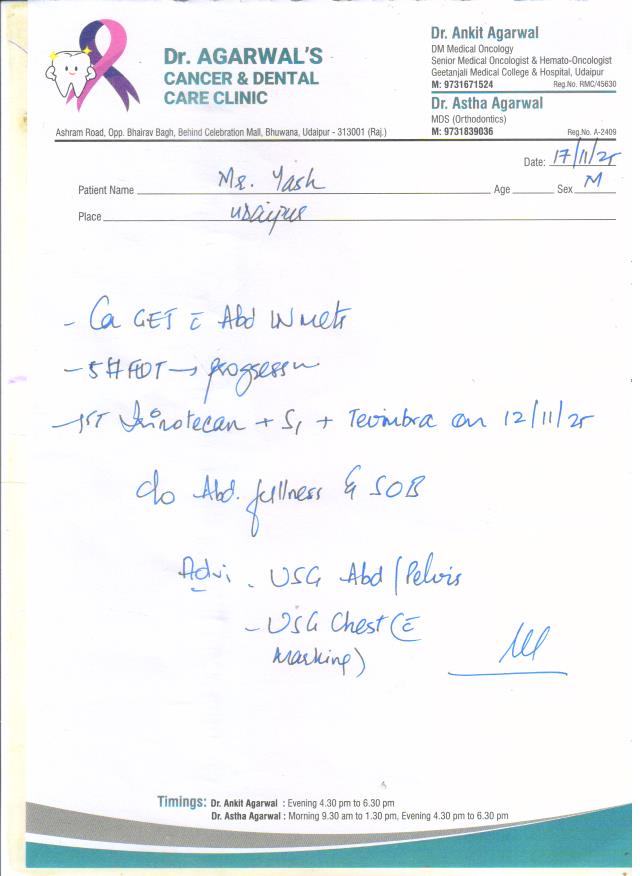 Dr. AGARWAL'S
CANCER & DENTAL
CARE CLINIC
Dr. Ankit Agarwal
DM Medical Oncology
Senior Medical Oncologist & Hemato-Oncologist
Geetanjali Medical College & Hospital, Udaipur
M: 9731671524 Reg.No. RMC/45630
Dr. Astha Agarwal
MDS (Orthodontics)
M: 9731839036 Reg.No. A-2409
Ashram Road, Opp. Bhairav Bagh, Behind Celebration Mall, Bhuwana, Udaipur - 313001 (Raj.)
Date: 17/11/25
Patient Name Mr. Yash Age Sex M
Place Udaipur
- Ca GEJ c̄ Abd LN mets
- 5# → progression
- 1st Irinotecan + S1 + Tevimbra on 12/11/25
c/o Abd. fullness & SOB
Adv: - USG Abd/Pelvis
- USG Chest (c̄
Marking)
Timings: Dr. Ankit Agarwal : Evening 4.30 pm to 6.30 pm
Dr. Astha Agarwal : Morning 9.30 am to 1.30 pm, Evening 4.30 pm to 6.30 pm